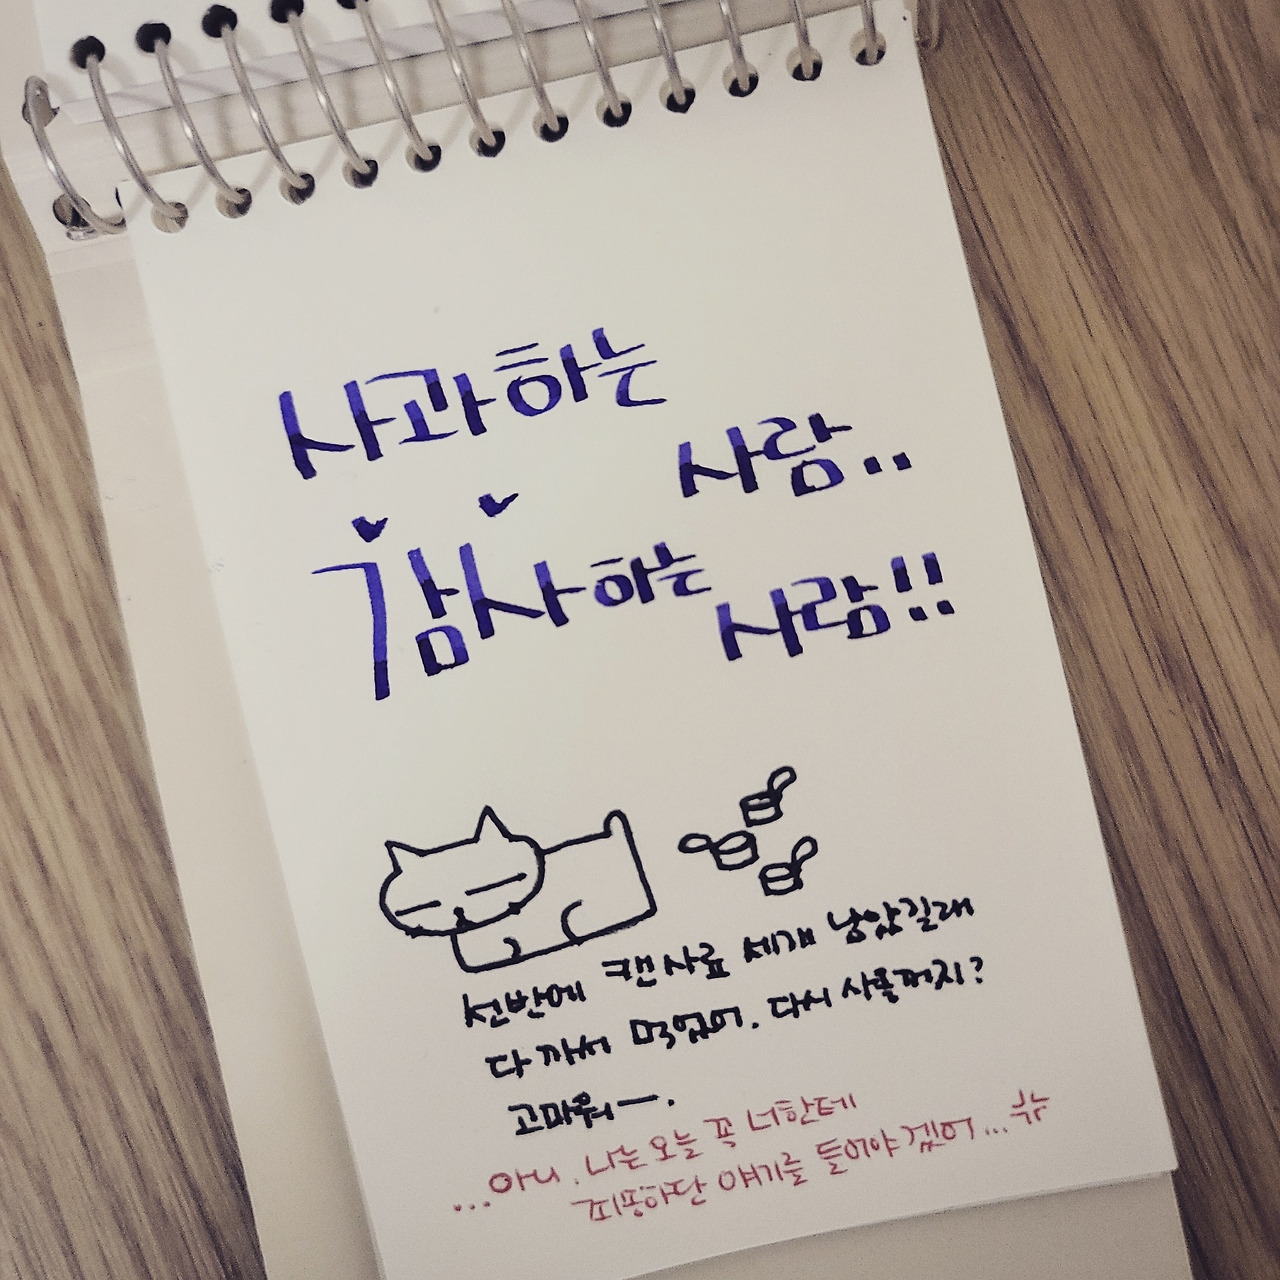 사과하는
사람..
감사하는
사람!!
선반에 캔사료 세개 남았길래
다 까서 먹었어. 다시 사올꺼지?
고마워ㅡ.
...아니, 나는 오늘 꼭 너한테
미안하단 얘기를 들어야겠어...ㅠ